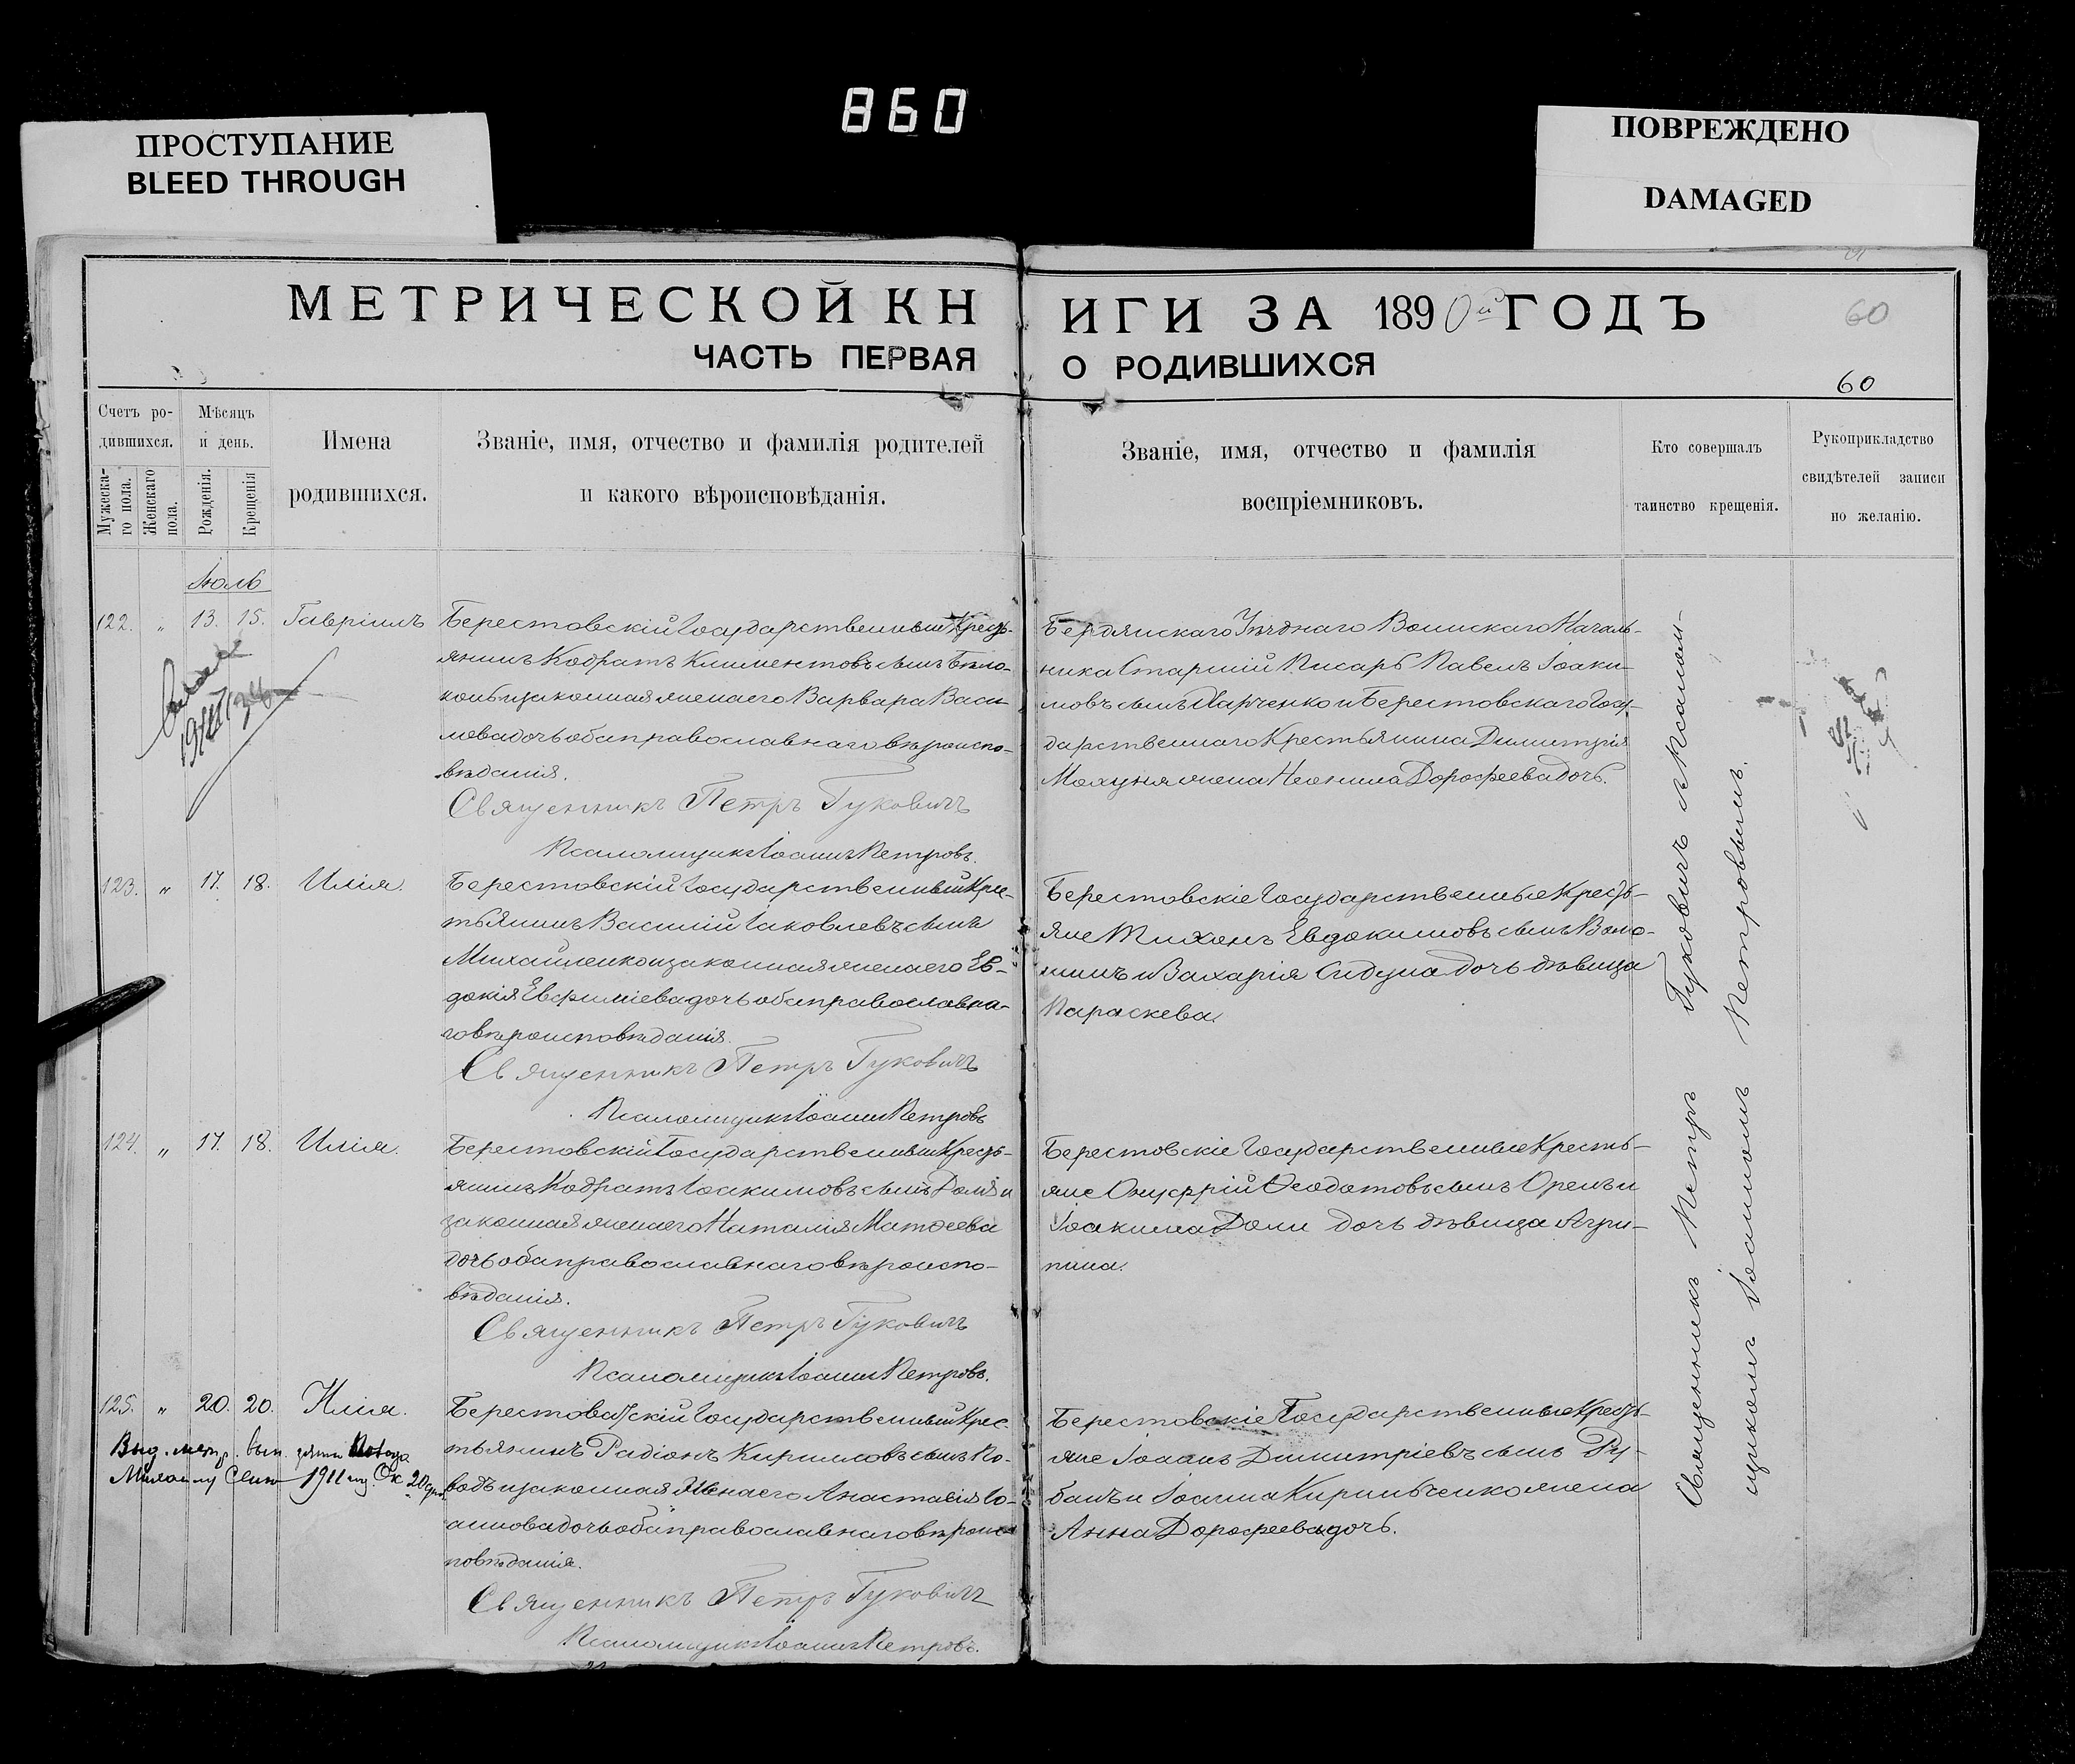 860
ПРОСТУПАНИЕ
BLEED THROUGH
ПОВРЕЖДЕНО
DAMAGED
МЕТРИЧЕСКОЙ КН
ЧАСТЬ ПЕРВАЯ
ИГИ ЗА 1890й ГОДЪ
О РОДИВШИХСЯ
60
60
Счетъ ро-
дившихся.
Мужеска-
го пола.
Женскаго
пола.
Мѣсяцъ
и день.
Рожденія.
Крещенія
Имена
родившихся.
Званіе, имя, отчество и фамилія родителей
и какого вѣроисповѣданія.
Званіе, имя, отчество и фамилія
воспріемниковъ.
Кто совершалъ
таинство крещенія.
Рукоприкладство
свидѣтелей записи
по желанію.
Іюль
122. " 13. 15. Гавріилъ
Берестовскій Государственный Кресть-
янинъ Кодратъ Климентовъ сынъ Бѣло-
конь и законная жена его Варвара Васи-
льева дочь оба православнаго вѣроиспо-
вѣданія.
Священникъ Петръ Гуковичъ
Псаломщикъ Іоаннъ Петровъ.
Бердянскаго Уѣзднаго Воинскаго Началь-
ника Старшій Писарь Павелъ Іоаки-
мовъ сынъ Харченко и Берестовскаго Госу-
дарственнаго Крестьянина Димитрія
жена Неонила Дорофеева дочь.
123. " 17. 18. Илія.
Берестовскій Государственный Крес-
тьянинъ Василій Іаковлевъ сынъ
Михайленко и законная жена его Ев-
докія Евфиміева дочь оба православна-
го вѣроисповѣданія.
Священникъ Петръ Гуковичъ
Псаломщикъ Іоаннъ Петровъ
Берестовскіе Государственные Кресть-
яне Тихонъ Евдокимовъ сынъ Воло-
шинъ и Захарія дочь дѣвица
Параскева.
124. " 17. 18. Илія.
Берестовскій Государственный Кресть-
янинъ Кодратъ Іоакимовъ сынъ Доля и
законная жена его Наталія Матѳеева
дочь оба православнаго вѣроиспо-
вѣданія.
Священникъ Петръ Гуковичъ
Псаломщикъ Іоаннъ Петровъ.
Берестовскіе Государственные Кресть-
яне Онуфрій Ѳеодотовъ сынъ Орелъ и
Іоакима Доли дочь дѣвица Агри-
пина.
125. " 20. 20. Илія.
Выд. метр. вып.
1911 г.
Берестовскій Государственный Крес-
тьянинъ Радіонъ Кирилловъ сынъ По-
водъ и законная жена его Анастасія Іо-
аннова дочь оба православнаго вѣроис-
повѣданія.
Священникъ Петръ Гуковичъ
Псаломщикъ Іоаннъ Петровъ.
Берестовскіе Государственные Кресть-
яне Іоаннъ Димитріевъ сынъ Ру-
банъ и Іоанна Кирильченко жена
Анна Дорофеева дочь.
Священникъ Петръ Гуковичъ съ Псалом-
щикомъ Іоанномъ Петровымъ.